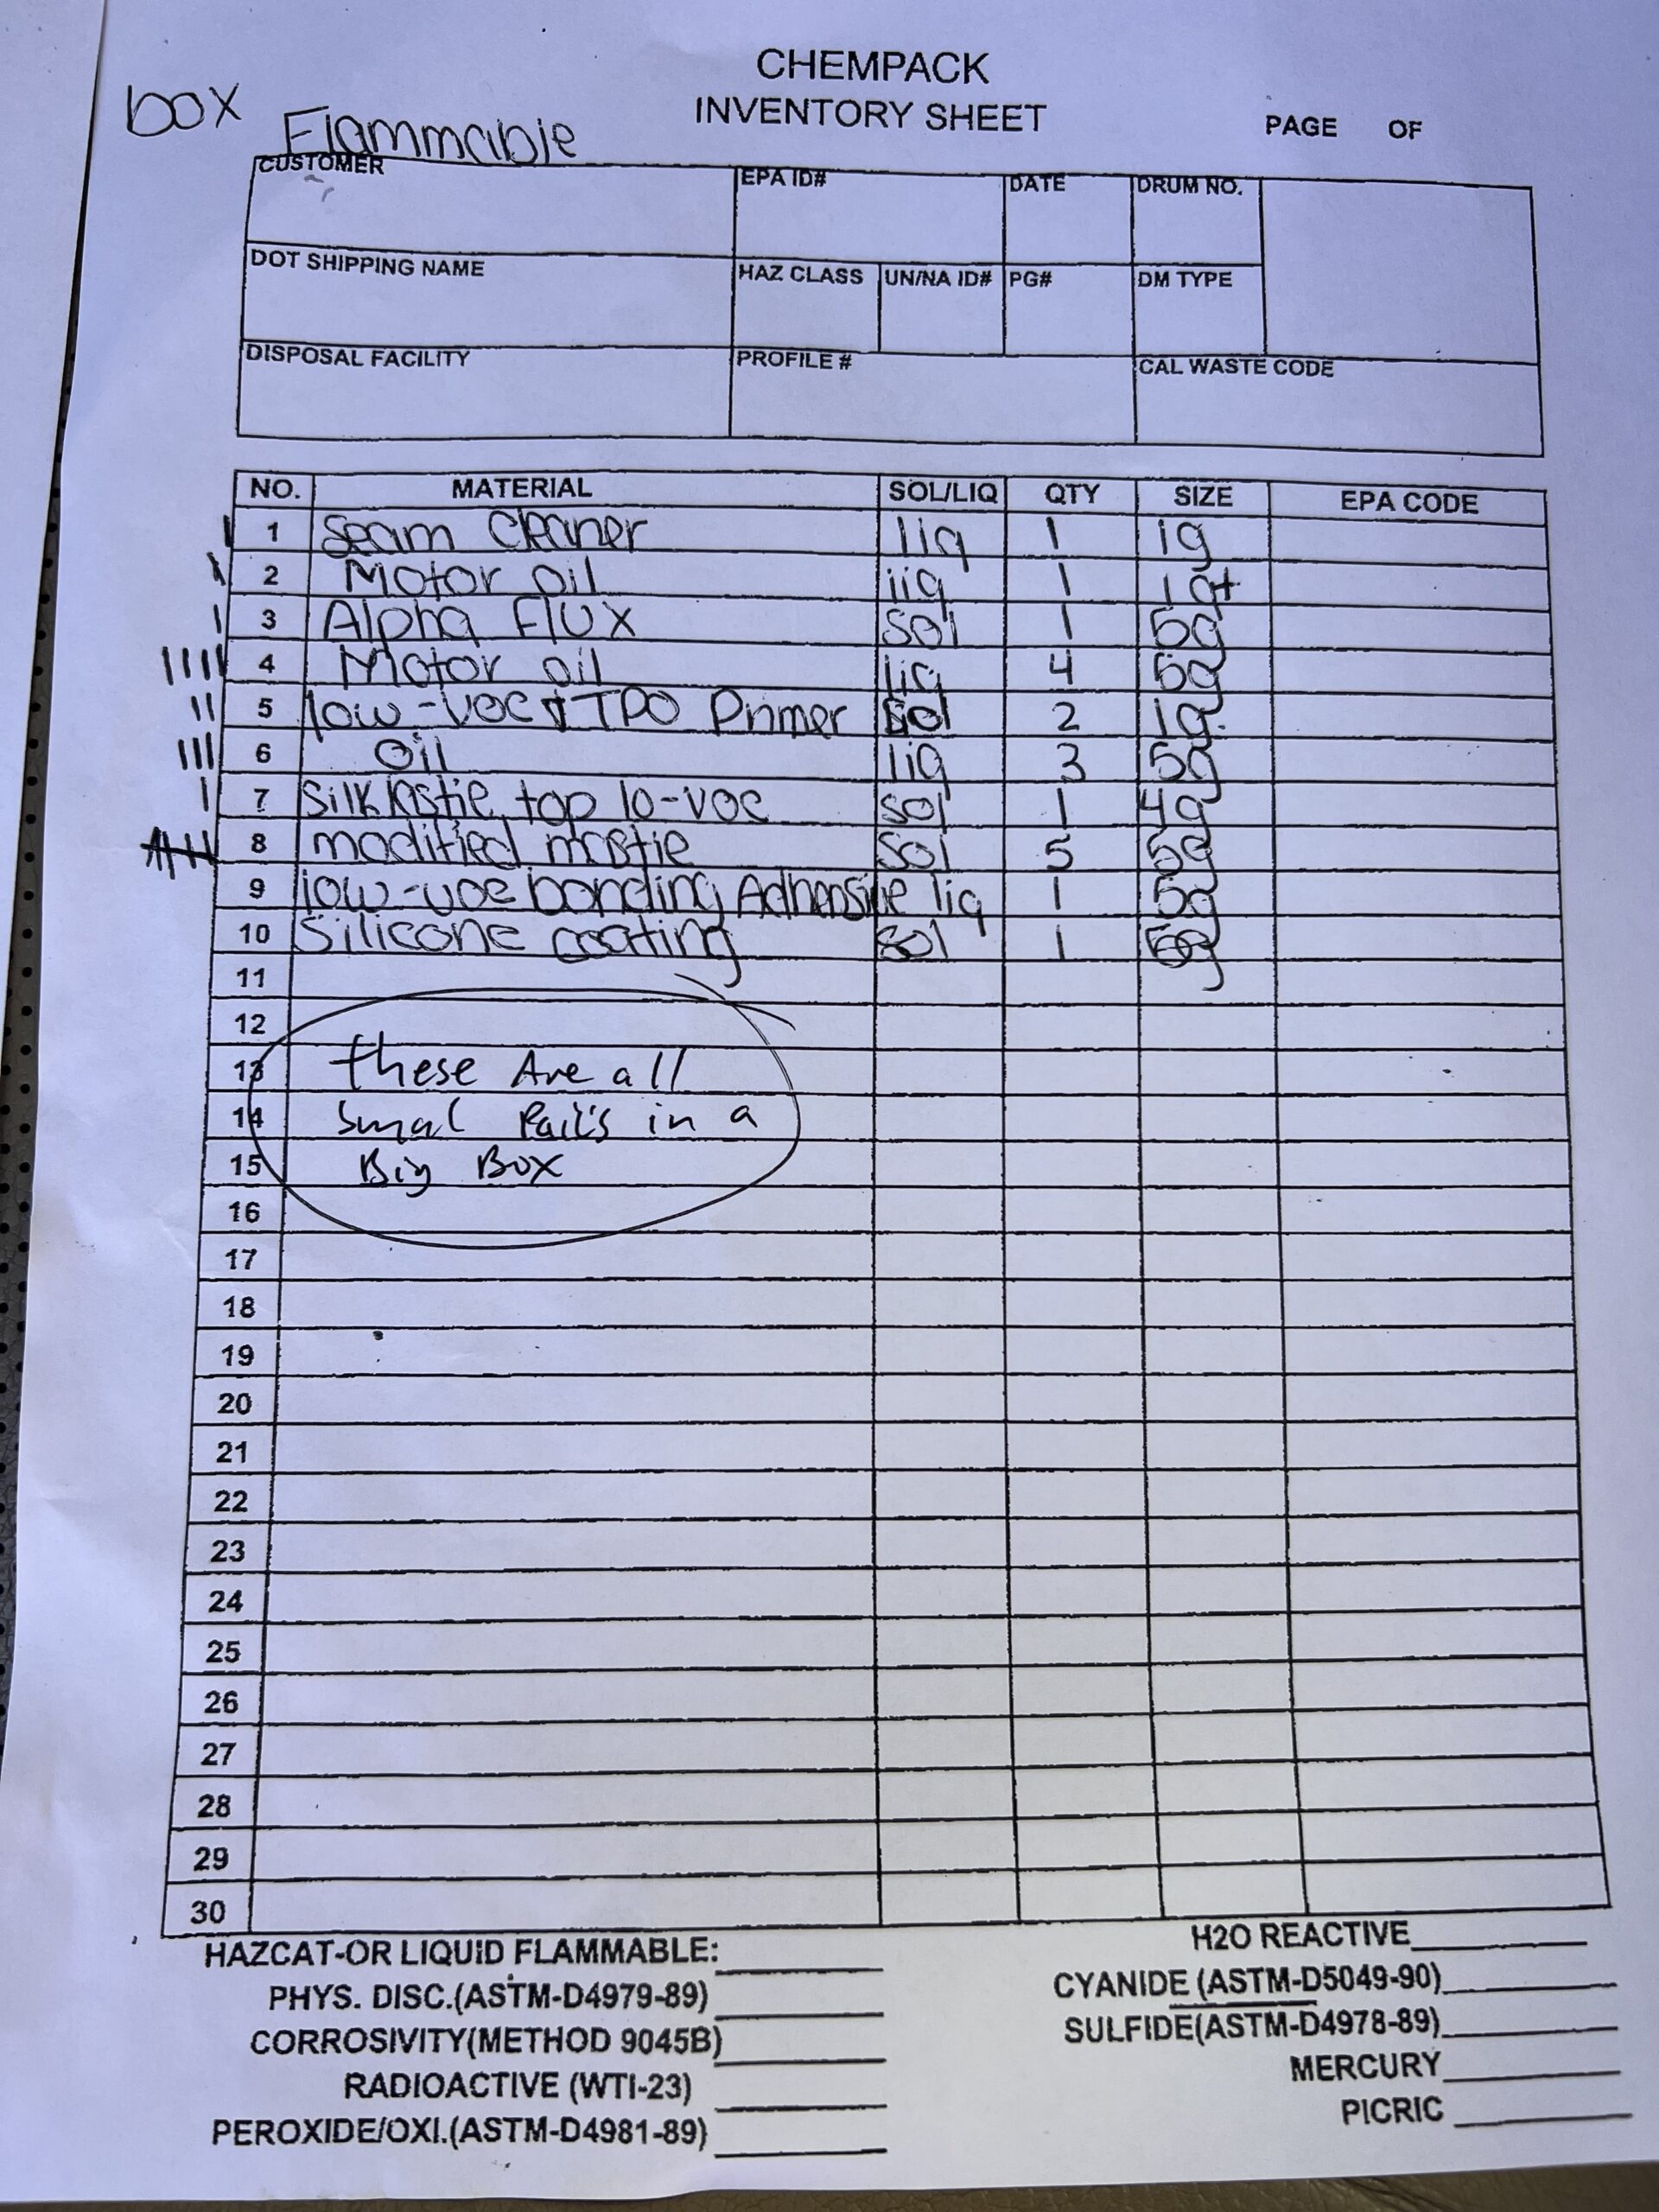 CHEMPACK
INVENTORY SHEET
PAGE OF
box
Flammable
CUSTOMER EPA ID# DATE DRUM NO.
DOT SHIPPING NAME HAZ CLASS UN/NA ID# PG# DM TYPE
DISPOSAL FACILITY PROFILE # CAL WASTE CODE
NO. MATERIAL SOL/LIQ QTY SIZE EPA CODE
1 Seam Cleaner liq 1 1g
2 Motor oil liq 1 1qt
3 Alpha Flux sol 1 5g
4 Motor oil liq 4 5g
5 low-VOC TPO Primer sol 2 1g
6 Oil liq 3 5g
7 top lo-voc sol 1 4g
8 modified mastie sol 5 5g
9 low-voc bonding Adhensive liq 1 5g
10 Silicone coating sol 1 5g
11
12
13 these Are all
14 smal Pails in a
15 Big Box
16
17
18
19
20
21
22
23
24
25
26
27
28
29
30
HAZCAT-OR LIQUID FLAMMABLE:
PHYS. DISC.(ASTM-D4979-89)
CORROSIVITY(METHOD 9045B)
RADIOACTIVE (WTI-23)
PEROXIDE/OXI.(ASTM-D4981-89)
H2O REACTIVE
CYANIDE (ASTM-D5049-90)
SULFIDE(ASTM-D4978-89)
MERCURY
PICRIC